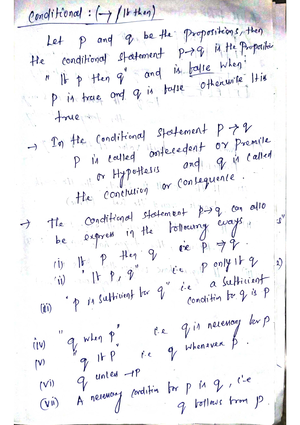 Conditional : (→ / If then)
Let p and q be the Propositions, then
the conditional statement p→q is the Proposition
" If p then q" and is false when
p is true and q is false otherwise it is
true.
→ In the Conditional Statement p→q
p is called antecedent or Premise
or Hypothesis and q is called
the Conclusion or Consequence.
→ The Conditional statement p→q can also
be express in the following ways
(i) If p then q i.e p→q.
(ii) "If p, q" i.e. p only if q
(iii) "p is sufficient for q" i.e a sufficient
condition to q is p
(iv) "q when p" i.e q is necessary for p
(v) "q if p" i.e q whenever p.
(vi) q unless ¬p
(vii) A necessary condition for p is q, i.e
q follows from p.